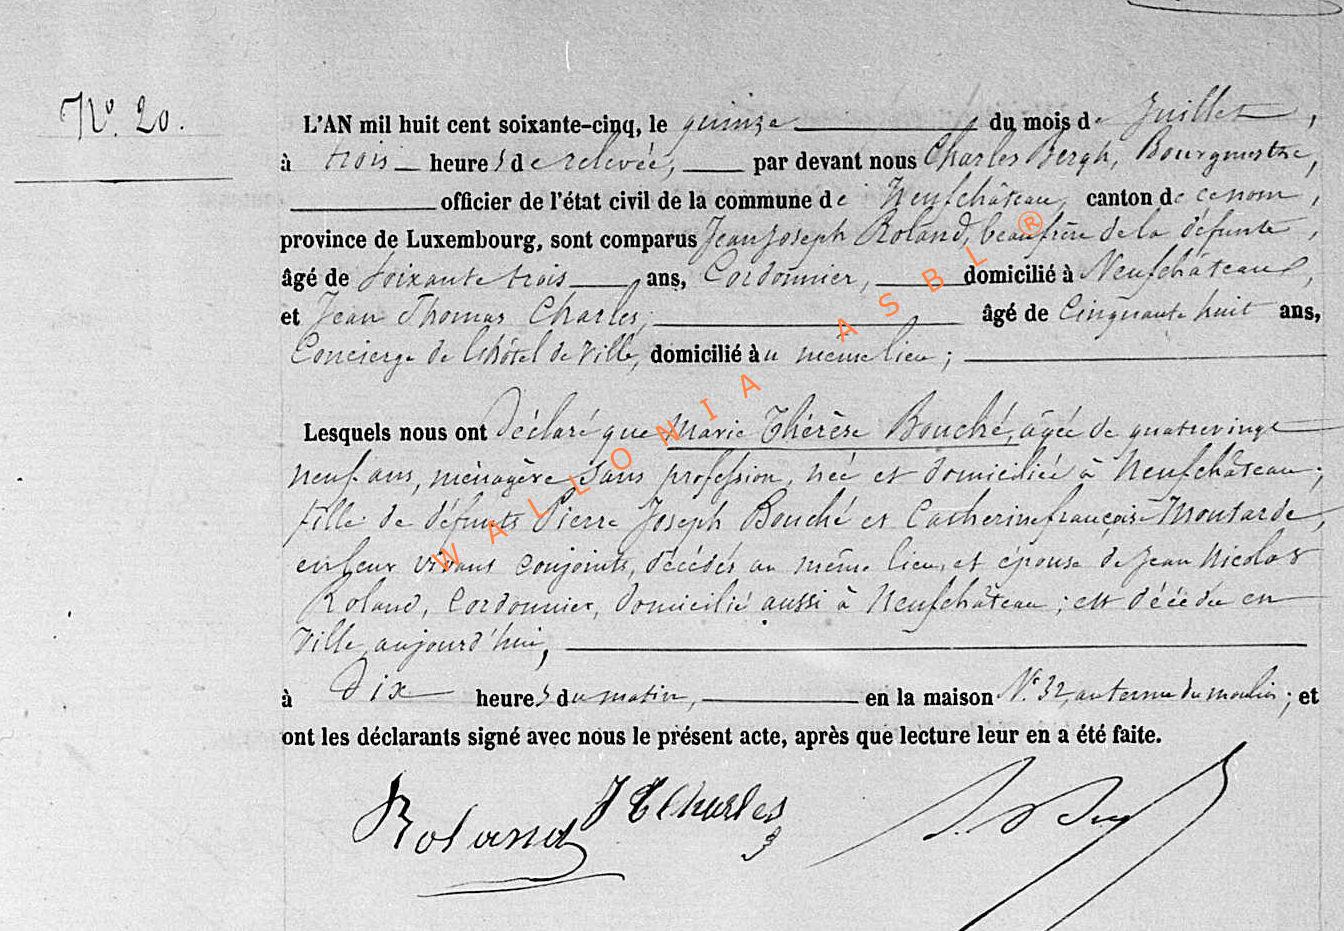 N.º 20.
L'AN mil huit cent soixante-cinq, le quinze du mois de Juillet,
à trois heures de relevée, par devant nous Charles Bergh, Bourgmestre,
officier de l'état civil de la commune de Neufchâteau, canton de ce nom,
province de Luxembourg, sont comparus Jean Joseph Roland, beau frère de la défunte,
âgé de soixante trois ans, Cordonnier, domicilié à Neufchâteau,
et Jean Thomas Charles, âgé de Cinquante huit ans,
Concierge de l'hôtel de Ville, domicilié au même lieu;
Lesquels nous ont déclaré que Marie Thérèse Bouché, âgée de quatrevingt
neuf ans, ménagère sans profession, née et domiciliée à Neufchâteau;
fille de défunts Pierre Joseph Bouché et Catherine françoise Moutarde,
en leur vivans conjoints, décédés au même lieu, et épouse de Jean Nicolas
Roland, Cordonnier, domicilié aussi à Neufchâteau; est décédée en
Ville, aujourd'hui,
à Dix heures du matin, en la maison N.º 32, au terme du moulin; et
ont les déclarants signé avec nous le présent acte, après que lecture leur en a été faite.
Roland JTCharles
WALLONIA ASBL ®